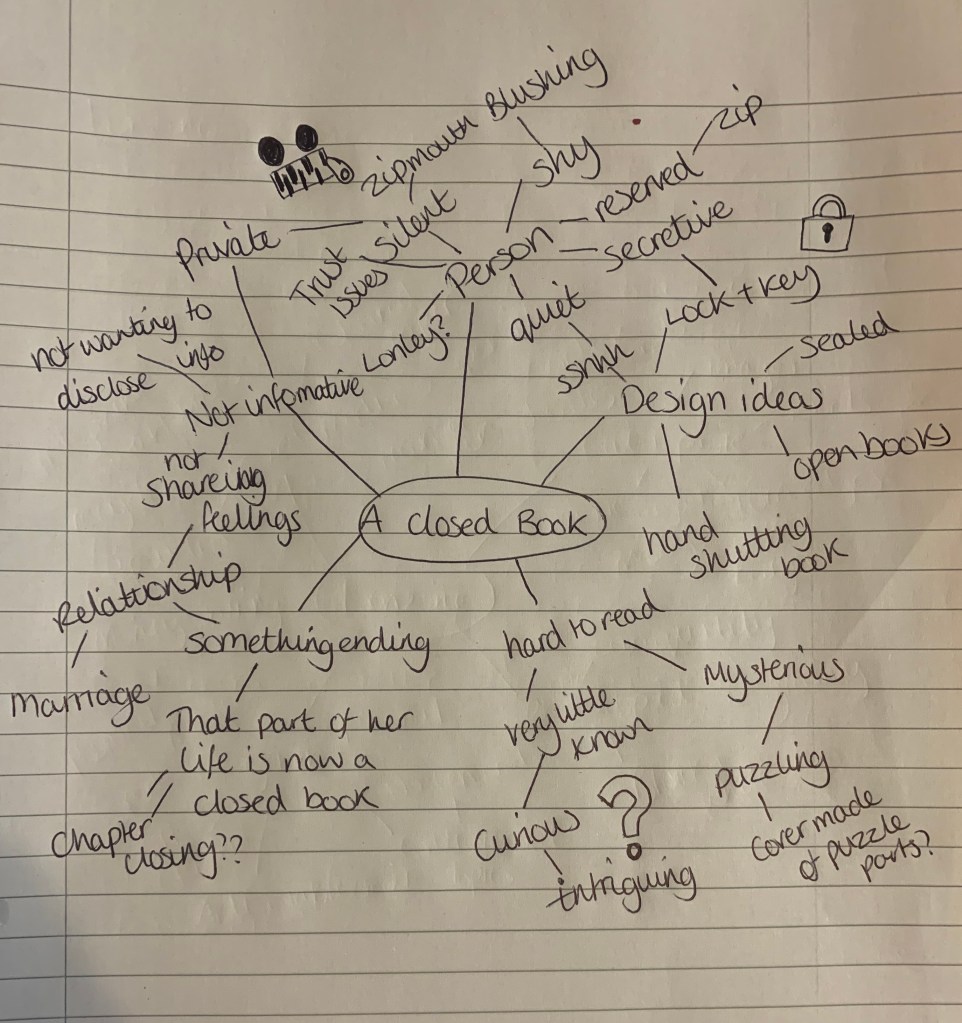 Blushing
zipmouth
zip
shy
reserved
Silent
secretive
Private
Trust
issues
Person
quiet
Lock + key
Lonley?
sshhh
not wanting to
disclose info
sealed
Not infomative
Design ideas
open books
not
Shareing
feelings
A Closed Book
hand
shutting
book
Relationship
something ending
hard to read
Mysterious
marriage
That part of her
life is now a
closed book
very little
known
puzzling
Chapter
closing??
Curious
?
intriguing
Cover made
of puzzle
parts?